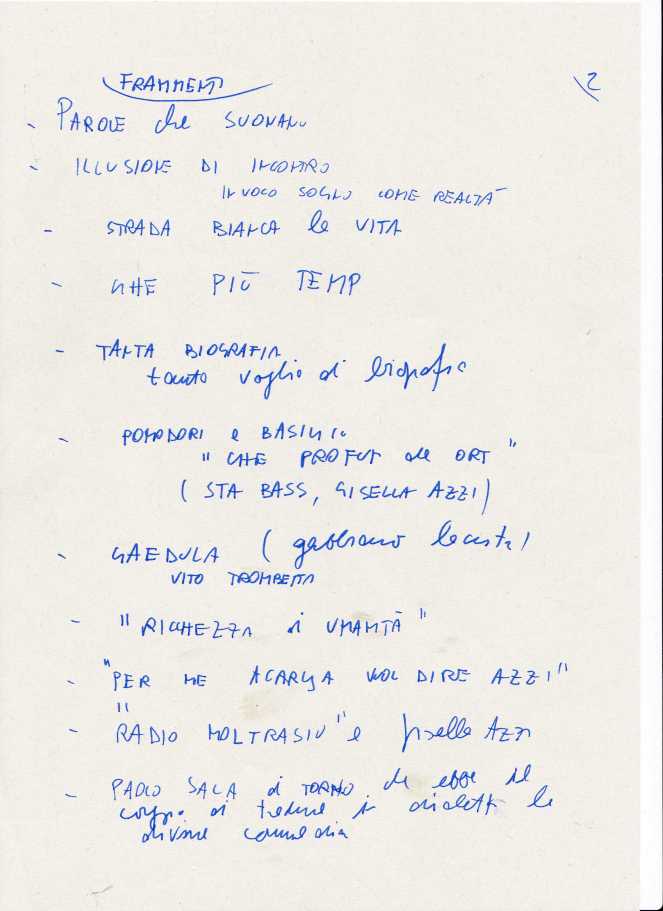 FRAMMENTI
2
- PAROLE che SUONANO
- ILLUSIONE DI INCONTRO
IN VOCO SOGNO COME REALTÀ
- STRADA BIANCA le VITA
- CHE PIÙ TEMP
- TANTA BIOGRAFIA
tanta voglia di biografia
- POMODORI e BASILICO
" CHE PROFUM de ORT "
( STA BASS, GISELLA AZZI )
- GAEDULA ( gabbiano )
VITO TROMBETTA
- " RICCHEZZA di UMANITÀ "
- "PER ME ACARYA VOL DIRE AZZI"
- "RADIO MOLTRASIO" e Gisella AZZI
- PAOLO SALA di TORNO che ebbe il
di tradurre in dialetto la
divina commedia